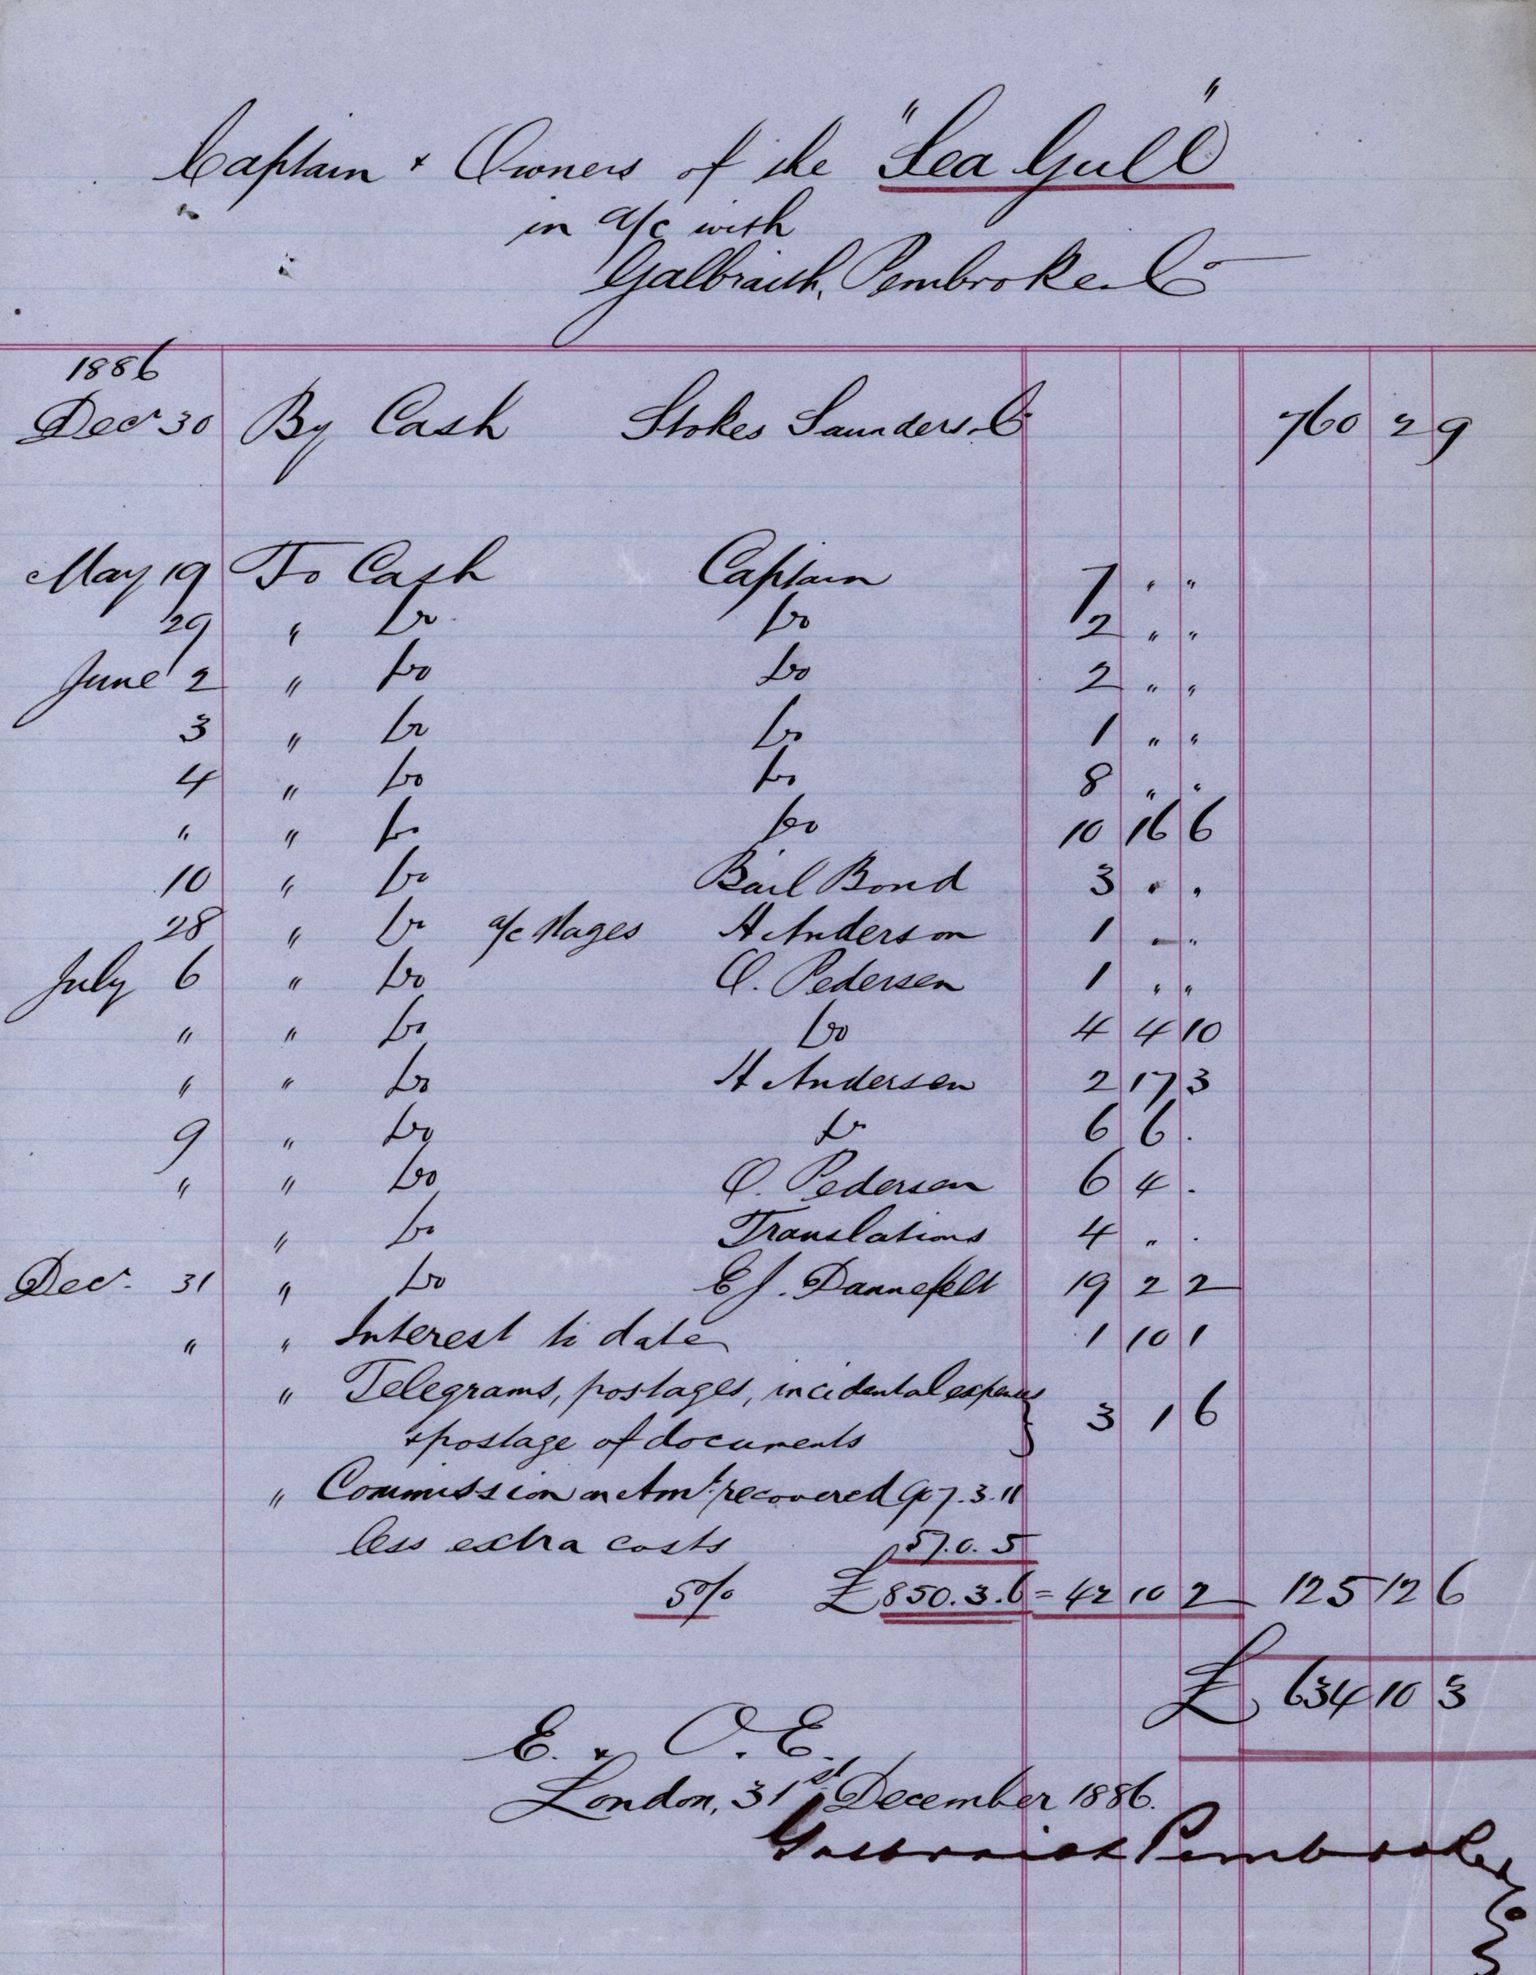 Captain + Owners of the "Sea Gull"
in a/c with
Galbraith, Pembroke & Co
1886
Decr 30 By Cash Stokes Saunders & Co 760 2 9
May 19 To Cash Captain 7 " "
29 " Do Do 2 " "
June 2 " Do Do 2 " "
3 " Do Do 1 " "
4 " Do Do 8 " "
" " Do Do 10 16 6
10 " Do Bail Bond 3 " "
28 " Do a/c Wages H Anderson 1 " "
July 6 " Do O. Pedersen 1 " "
" " Do Do 4 4 10
" " Do H Andersen 2 17 3
9 " Do Do 6 6 .
" " Do O. Pedersen 6 4 .
" Do Translations 4 " .
Decr. 31 " Do E J. Dannefelt 19 2 2
" " Interest to date 1 10 1
" Telegrams, postages, incidental expenses
+ postage of documents } 3 1 6
" Commission on Amt. recovered 907.3.11
less extra costs 57.0.5
5% £850.3.6 = 42 10 2 125 12 6
£ 634 10 3
E. & O. E.
London, 31st December 1886.
Galbraith Pembroke & Co